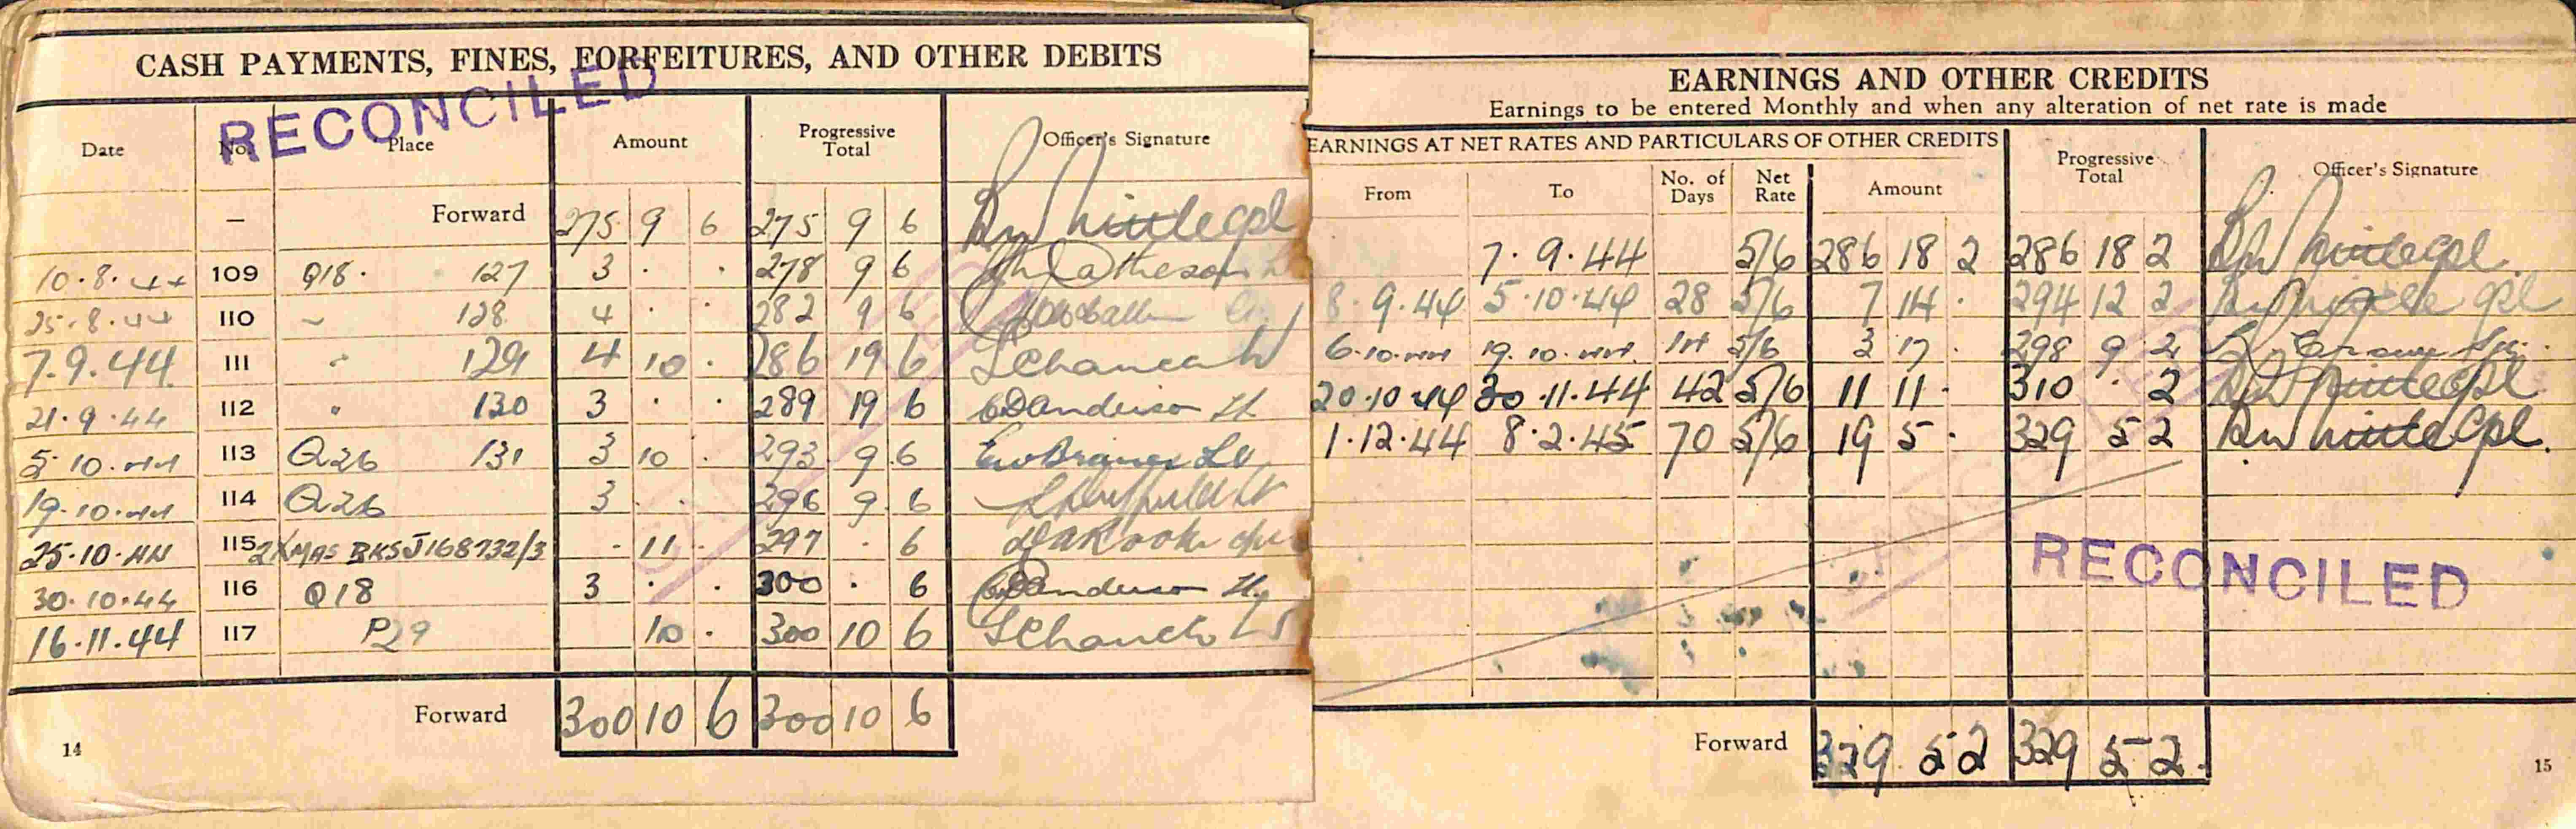 CASH PAYMENTS, FINES, FORFEITURES, AND OTHER DEBITS
RECONCILED
Date No. Place Amount Progressive Total Officer's Signature
— Forward 275 9 6 275 9 6
10.8.44 109 Q18. 127 3 . . 278 9 6
25.8.44 110 " 128 4 . . 282 9 6
7.9.44 111 " 129 4 10 . 286 19 6
21.9.44 112 " 130 3 . . 289 19 6 Anderson Lt
5.10.44 113 Q26 131 3 10 . 293 9 6
19.10.44 114 Q26 3 . . 296 9 6
25.10.44 115 2 XMAS BKS J168732/3 . 11 . 297 . 6
30.10.44 116 Q18 3 . . 300 . 6 Anderson Lt.
16.11.44 117 P29 10 . 300 10 6
Forward 300 10 6 300 10 6
14
EARNINGS AND OTHER CREDITS
Earnings to be entered Monthly and when any alteration of net rate is made
EARNINGS AT NET RATES AND PARTICULARS OF OTHER CREDITS
From To No. of Days Net Rate Amount Progressive Total Officer's Signature
7.9.44 5/6 286 18 2 286 18 2 Cpl
8.9.44 5.10.44 28 5/6 7 14 . 294 12 2 Cpl
6.10.44 19.10.44 14 5/6 3 17 . 298 9 2
20.10.44 30.11.44 42 5/6 11 11 . 310 . 2 Cpl
1.12.44 8.2.45 70 5/6 19 5 . 329 5 2 Cpl.
RECONCILED
Forward 329 5 2 329 5 2
15